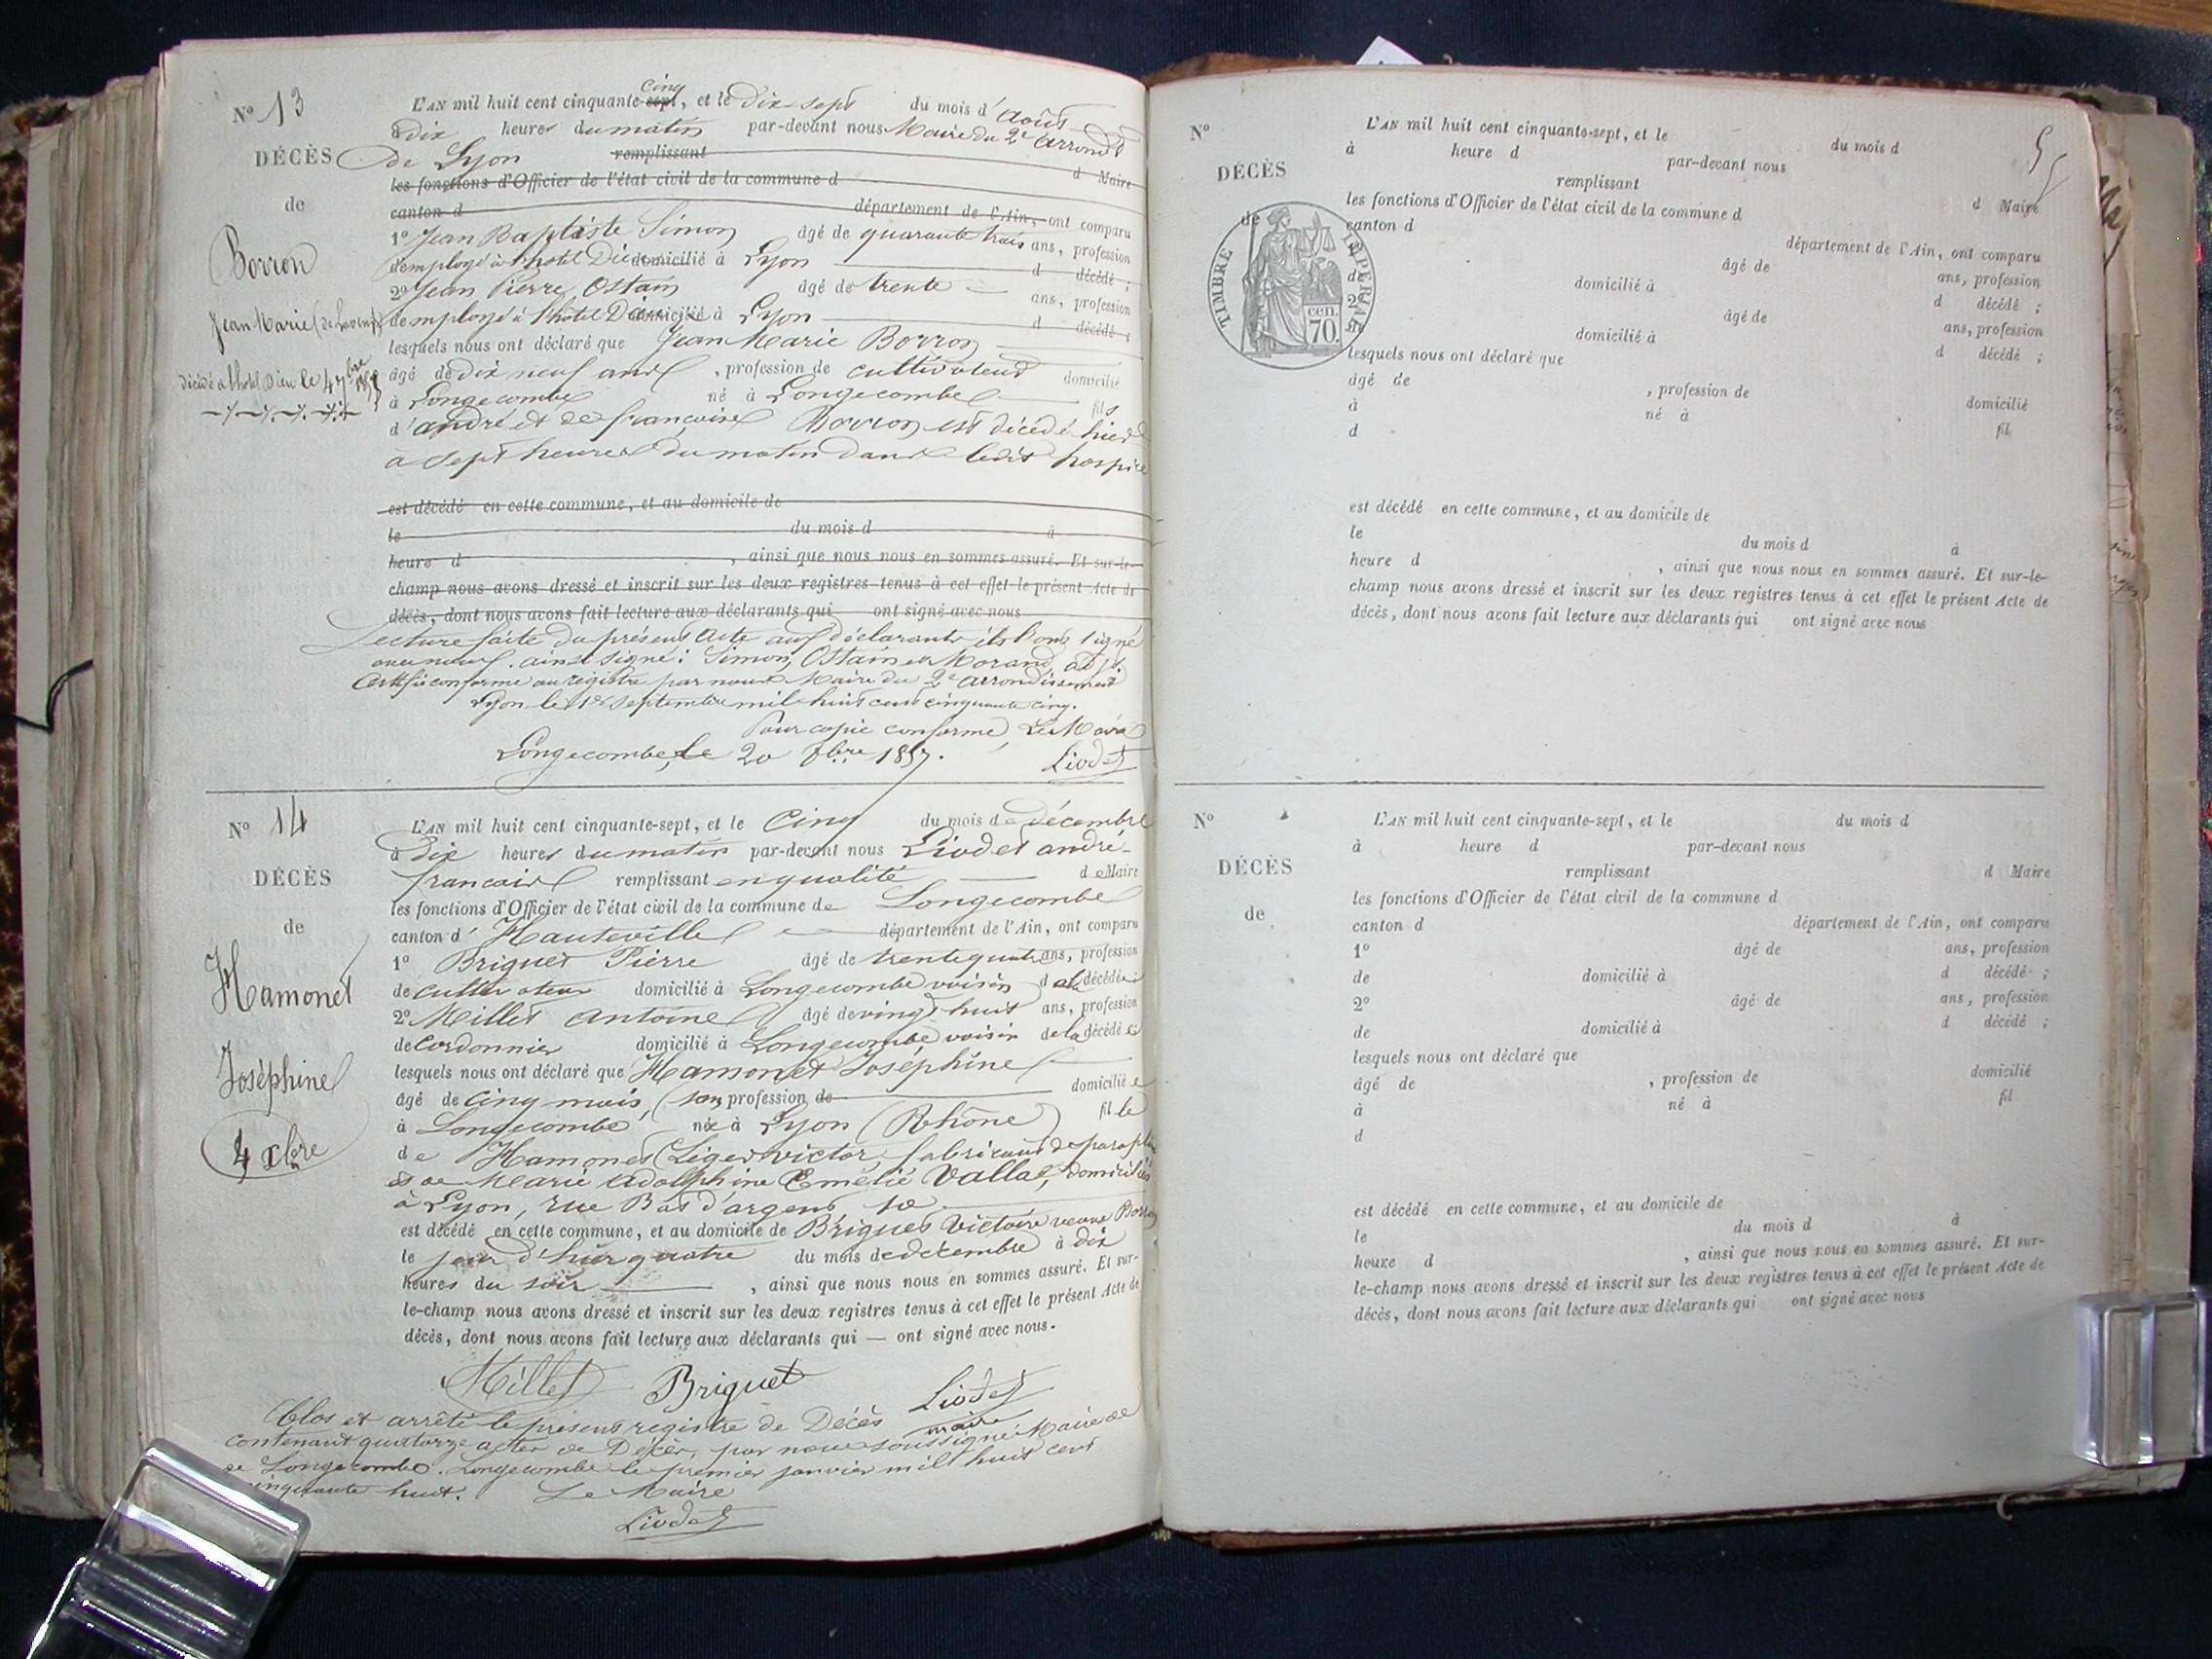 N° 13
DÉCÈS
de
Borron
Jean Marie
décédé à l'hotel Dieu le
L'AN mil huit cent cinquante-sept cinq, et le dix sept du mois d'août
à dix heures du matin par-devant nous Maire du 2e arrondt
de Lyon remplissant d Maire
les fonctions d'Officier de l'état civil de la commune d
canton d département de l'Ain, ont comparu
1° Jean Baptiste Simon âgé de quarante trois ans, profession
d'employé à l'hotel Dieu domicilié à Lyon d décédé ;
2° Jean Pierre Ostain âgé de trente ans, profession
d'employé à l'hôtel Dieu domicilié à Lyon d décédé ;
lesquels nous ont déclaré que Jean Marie Borron
âgé de dix neuf ans, profession de cultivateur domicilié
à Longecombe né à Longecombe fils
d'andré et de françoise Borron est décédé hier
à sept heures du matin dans ledit hospice
est décédé en cette commune, et au domicile de
le du mois d à
heure d , ainsi que nous nous en sommes assuré. Et sur-le-
champ nous avons dressé et inscrit sur les deux registres tenus à cet effet le présent Acte de
décès, dont nous avons fait lecture aux déclarants qui ont signé avec nous
Lecture faite du présent acte aux déclarants ils l'ont signé
avec nous. ainsi signé : Simon, Ostain et Morand, adjt.
Certifié conforme au registre par nous Maire du 2e arrondissement
Lyon le 1er septembre mil huit cent cinquante cinq.
Pour copie conforme, Le Maire
Longecombe, le 20 1857.
Liodet
N° 14
DÉCÈS
de
Hamonet
Joséphine
4 xbre
L'AN mil huit cent cinquante-sept, et le cinq du mois de décembre
à dix heures du matin par-devant nous Liodet andré-
francois remplissant en qualité de Maire
les fonctions d'Officier de l'état civil de la commune de Longecombe
canton d'Hauteville département de l'Ain, ont comparu
1° Briguet Pierre âgé de trente quatre ans, profession
de cultivateur domicilié à Longecombe voisin de la décédée ;
2° Millet Antoine âgé de vingt huit ans, profession
de Cordonnier domicilié à Longecombe voisin de la décédée ;
lesquels nous ont déclaré que Hamonet Joséphine
âgé de cinq mois, san profession de domiciliée
à Longecombe née à Lyon (Rhône) fille
de Hamonet Léger victor, fabricant de parapluie
et de Marie Adolphine Emélie Vallas, domiciliés
à Lyon, rue Bas d'argent
est décédé en cette commune, et au domicile de Briguet Victoire veuve Borron
le jour d'hier quatre du mois de décembre à dix
heures du soir , ainsi que nous nous en sommes assuré. Et sur-
le-champ nous avons dressé et inscrit sur les deux registres tenus à cet effet le présent Acte de
décès, dont nous avons fait lecture aux déclarants qui — ont signé avec nous.
Millet Briguet Liodet
maire
Clos et arrêté le présent registre de Décès
contenant quatorze actes de Décès, par nous soussigné Maire de
de Longecombe. Longecombe le premier janvier mil huit cent
cinquante huit. Le Maire
Liodet
N°
DÉCÈS
de
TIMBRE IMPERIAL
cen.
70.
L'AN mil huit cent cinquante-sept, et le du mois d
à heure d par-devant nous
remplissant d Maire
les fonctions d'Officier de l'état civil de la commune d
canton d département de l'Ain, ont comparu
âgé de ans, profession
de domicilié à d décédé ;
2° âgé de ans, profession
domicilié à d décédé ;
lesquels nous ont déclaré que
âgé de , profession de domicilié
à né à fil
d
est décédé en cette commune, et au domicile de
le du mois d à
heure d , ainsi que nous nous en sommes assuré. Et sur-le-
champ nous avons dressé et inscrit sur les deux registres tenus à cet effet le présent Acte de
décès, dont nous avons fait lecture aux déclarants qui ont signé avec nous
N°
DÉCÈS
de
L'AN mil huit cent cinquante-sept, et le du mois d
à heure d par-devant nous
remplissant d Maire
les fonctions d'Officier de l'état civil de la commune d
canton d département de l'Ain, ont comparu
1° âgé de ans, profession
de domicilié à d décédé ;
2° âgé de ans, profession
de domicilié à d décédé ;
lesquels nous ont déclaré que
âgé de , profession de domicilié
à né à fil
d
est décédé en cette commune, et au domicile de
le du mois d à
heure d , ainsi que nous nous en sommes assuré. Et sur-
le-champ nous avons dressé et inscrit sur les deux registres tenus à cet effet le présent Acte de
décès, dont nous avons fait lecture aux déclarants qui ont signé avec nous